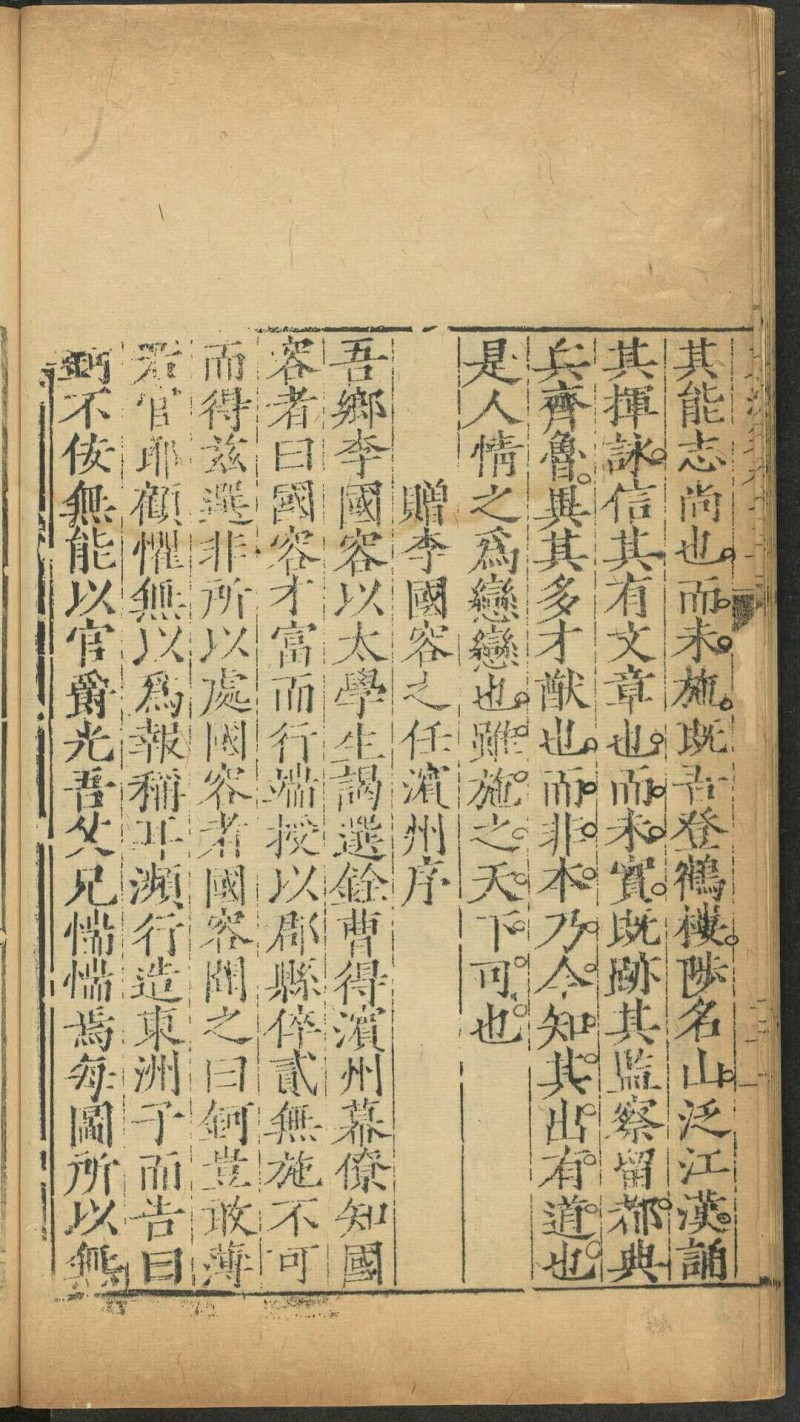 其能志尚也而未施既吾登鶴樓陟名山泛江漢誦
其揮詠信其有文章也而未實既跡其監察留都典
兵齊魯與其多才猷也而非本乃今知其出有道也
是人情之爲戀戀也雖施之天下可也
贈李國容之任濱州序
吾鄉李國容以太學生謁選銓曹得濱州幕僚知國
容者曰國容才富而行端授以郡縣倅貳無施不可
而得茲選非所以處國容者國容聞之曰鈳豈敢薄
君官耶顧懼無以爲報稱耳瀕行造東洲子而告曰
鈳不佞無能以官爵光吾父兄惴惴焉每圖所以無